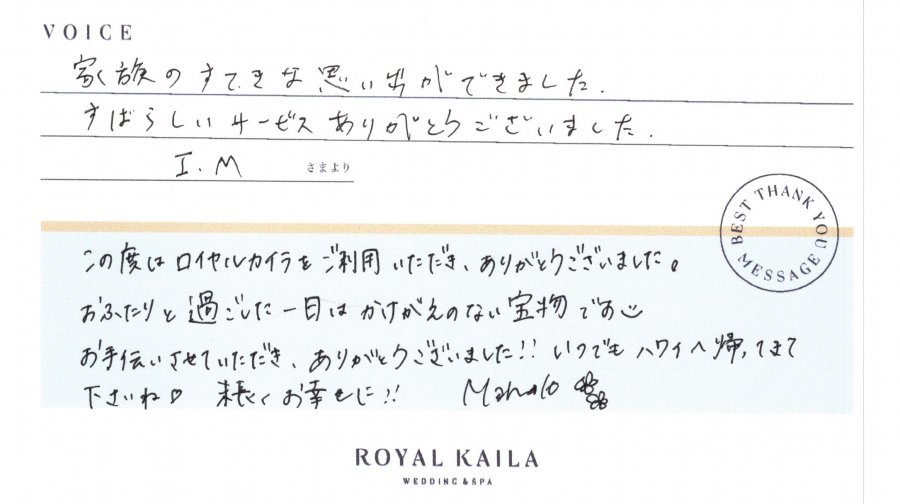 VOICE
家族のすてきな思い出ができました.
すばらしいサービスありがとうございました.
I.M さまより
BEST THANK YOU MESSAGE
この度はロイヤルカイラをご利用いただき、ありがとうございました。
おふたりと過ごした一日はかけがえのない宝物です
お手伝いさせていただき、ありがとうございました!! いつでもハワイへ帰ってきて
下さいね♡ 末長くお幸せに!! Mahalo
ROYAL KAILA
WEDDING & SPA